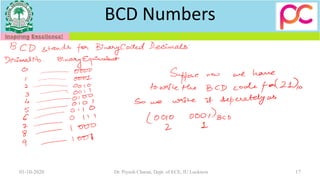 BCD Numbers
Inspiring Excellence!
BCD stands for Binary Coded Decimals
Decimal No. Binary Equivalent
0 — 0000
1 — 0001
2 — 0010
3 — 0011
4 — 0100
5 — 0101
6 — 0110
7 — 0111
8 — 1000
9 — 1001
Suppose now we have
to write the BCD code for (21)10
So we write it seperately as
(0010 0001)BCD
2 1
01-10-2020
Dr. Piyush Charan, Dept. of ECE, IU Lucknow
17